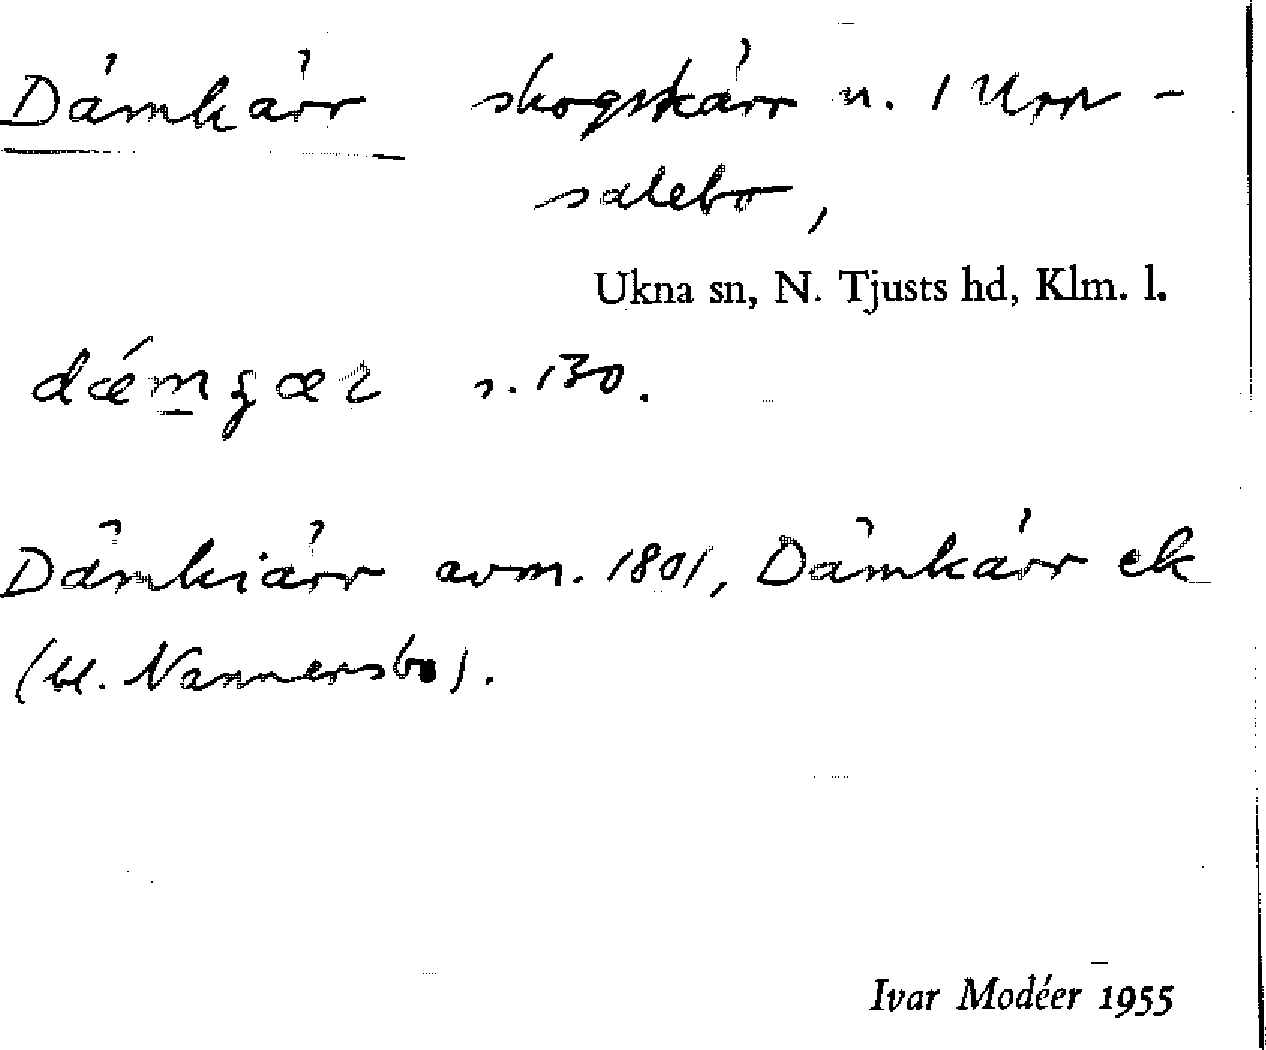 Dämkärr skogskärr n. 1 Upp-
salebo,
Ukna sn, N. Tjusts hd, Klm. l.
dǽmgær s. 130.
Dämkiärr avm. 1801, Dämkärr ek
(bl. Nannersbo).
Ivar Modéer 1955